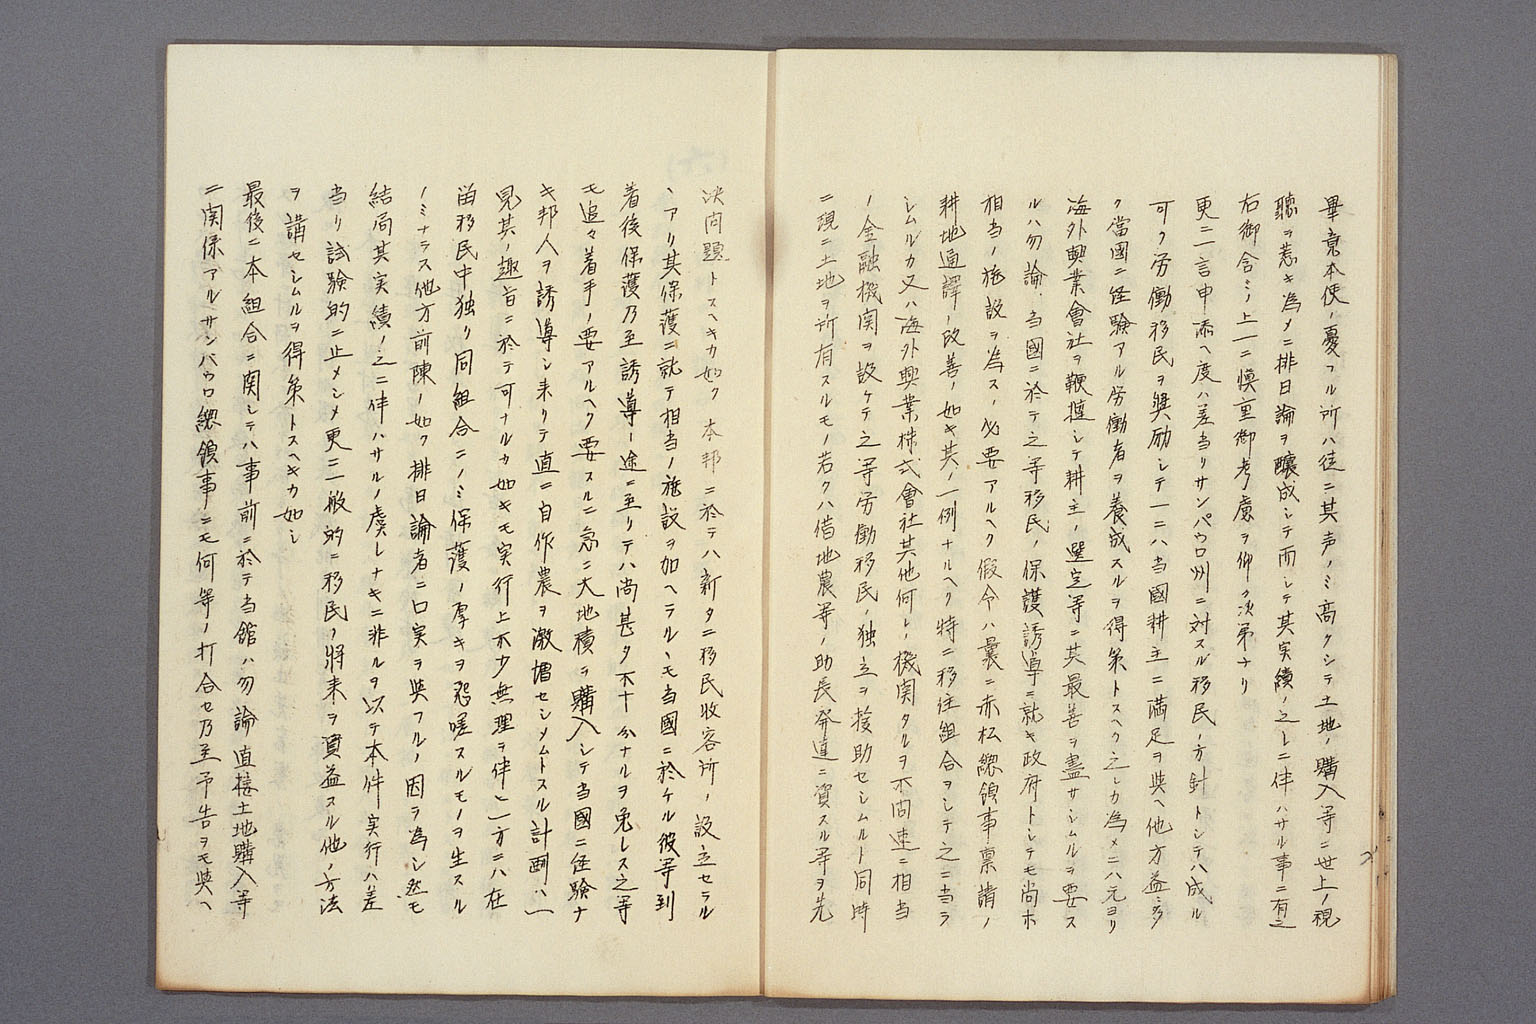 畢竟本使ノ憂フル所ハ徒ニ其声ノミ高クシテ土地ノ購入等ニ世上ノ視
聴ヲ惹キ為メニ排日論ヲ醸成シテ而シテ其実績ノ之レニ伴ハサル事ニ有之
右御含ミノ上ニ慎重御考慮ヲ仰ク次第ナリ
更ニ一言申添ヘ度ハ差当リサンパウロ州ニ対スル移民ノ方針トシテハ成ル
可ク労働移民ヲ奨励シテ一ニハ当國耕主ニ満足ヲ与ヘ他方益々多
ク當國ニ経験アル労働者ヲ養成スルヲ得策トスヘク之レカ為メニハ元ヨリ
海外興業會社ヲ鞭撻シテ耕主ノ選定等ニ其最善ヲ盡サシムルヲ要ス
ルハ勿論当國ニ於テ之等移民ノ保護誘導ニ就キ政府トシテモ尚ホ
相当ノ施設ヲ為スノ必要アルヘク假令ハ曩ニ赤松総領事禀請ノ
耕地通譯ノ改善ノ如キ其ノ一例ナルヘク特ニ移住組合ヲシテ之ニ当ラ
シムルカ又ハ海外興業株式會社其他何レノ機関タルヲ不問速ニ相当
ノ金融機関ヲ設ケテ之等労働移民ノ独立ヲ援助セシムルト同時
ニ現ニ土地ヲ所有スルモノ若クハ借地農等ノ助長発達ニ資スル等ヲ先
決問題トスヘキカ如ク本邦ニ於テハ新タニ移民收容所ノ設立セラル
ヽアリ其保護ニ就テ相当ノ施設ヲ加ヘラルヽモ当國ニ於ケル彼等到
着後保護乃至誘導ノ途ニ至リテハ尚甚タ不十分ナルヲ免レス之等
モ追々着手ノ要アルヘク要スルニ急ニ大地積ヲ購入シテ当國ニ経験ナ
キ邦人ヲ誘導シ来リテ直ニ自作農ヲ激増セシメムトスル計画ハ一
見其ノ趣旨ニ於テ可ナルカ如キモ実行上不少無理ヲ伴ヒ一方ニハ在
留移民中独リ同組合ニノミ保護ノ厚キヲ怨嗟スルモノヲ生スル
ノミナラス他方前陳ノ如ク排日論者ニ口実ヲ与フルノ因ヲ為シ然モ
結局其実績ノ之ニ伴ハサルノ虞レナキニ非ルヲ以テ本件実行ハ差
当リ試験的ニ止メシメ更ニ一般的ニ移民ノ將来ヲ資益スル他ノ方法
ヲ講セシムルヲ得策トスヘキカ如シ
最後ニ本組合ニ関シテハ事前ニ於テ当館ハ勿論直接土地購入等
ニ関係アルサンパウロ総領事ニモ何等ノ打合セ乃至予告ヲモ与ヘ